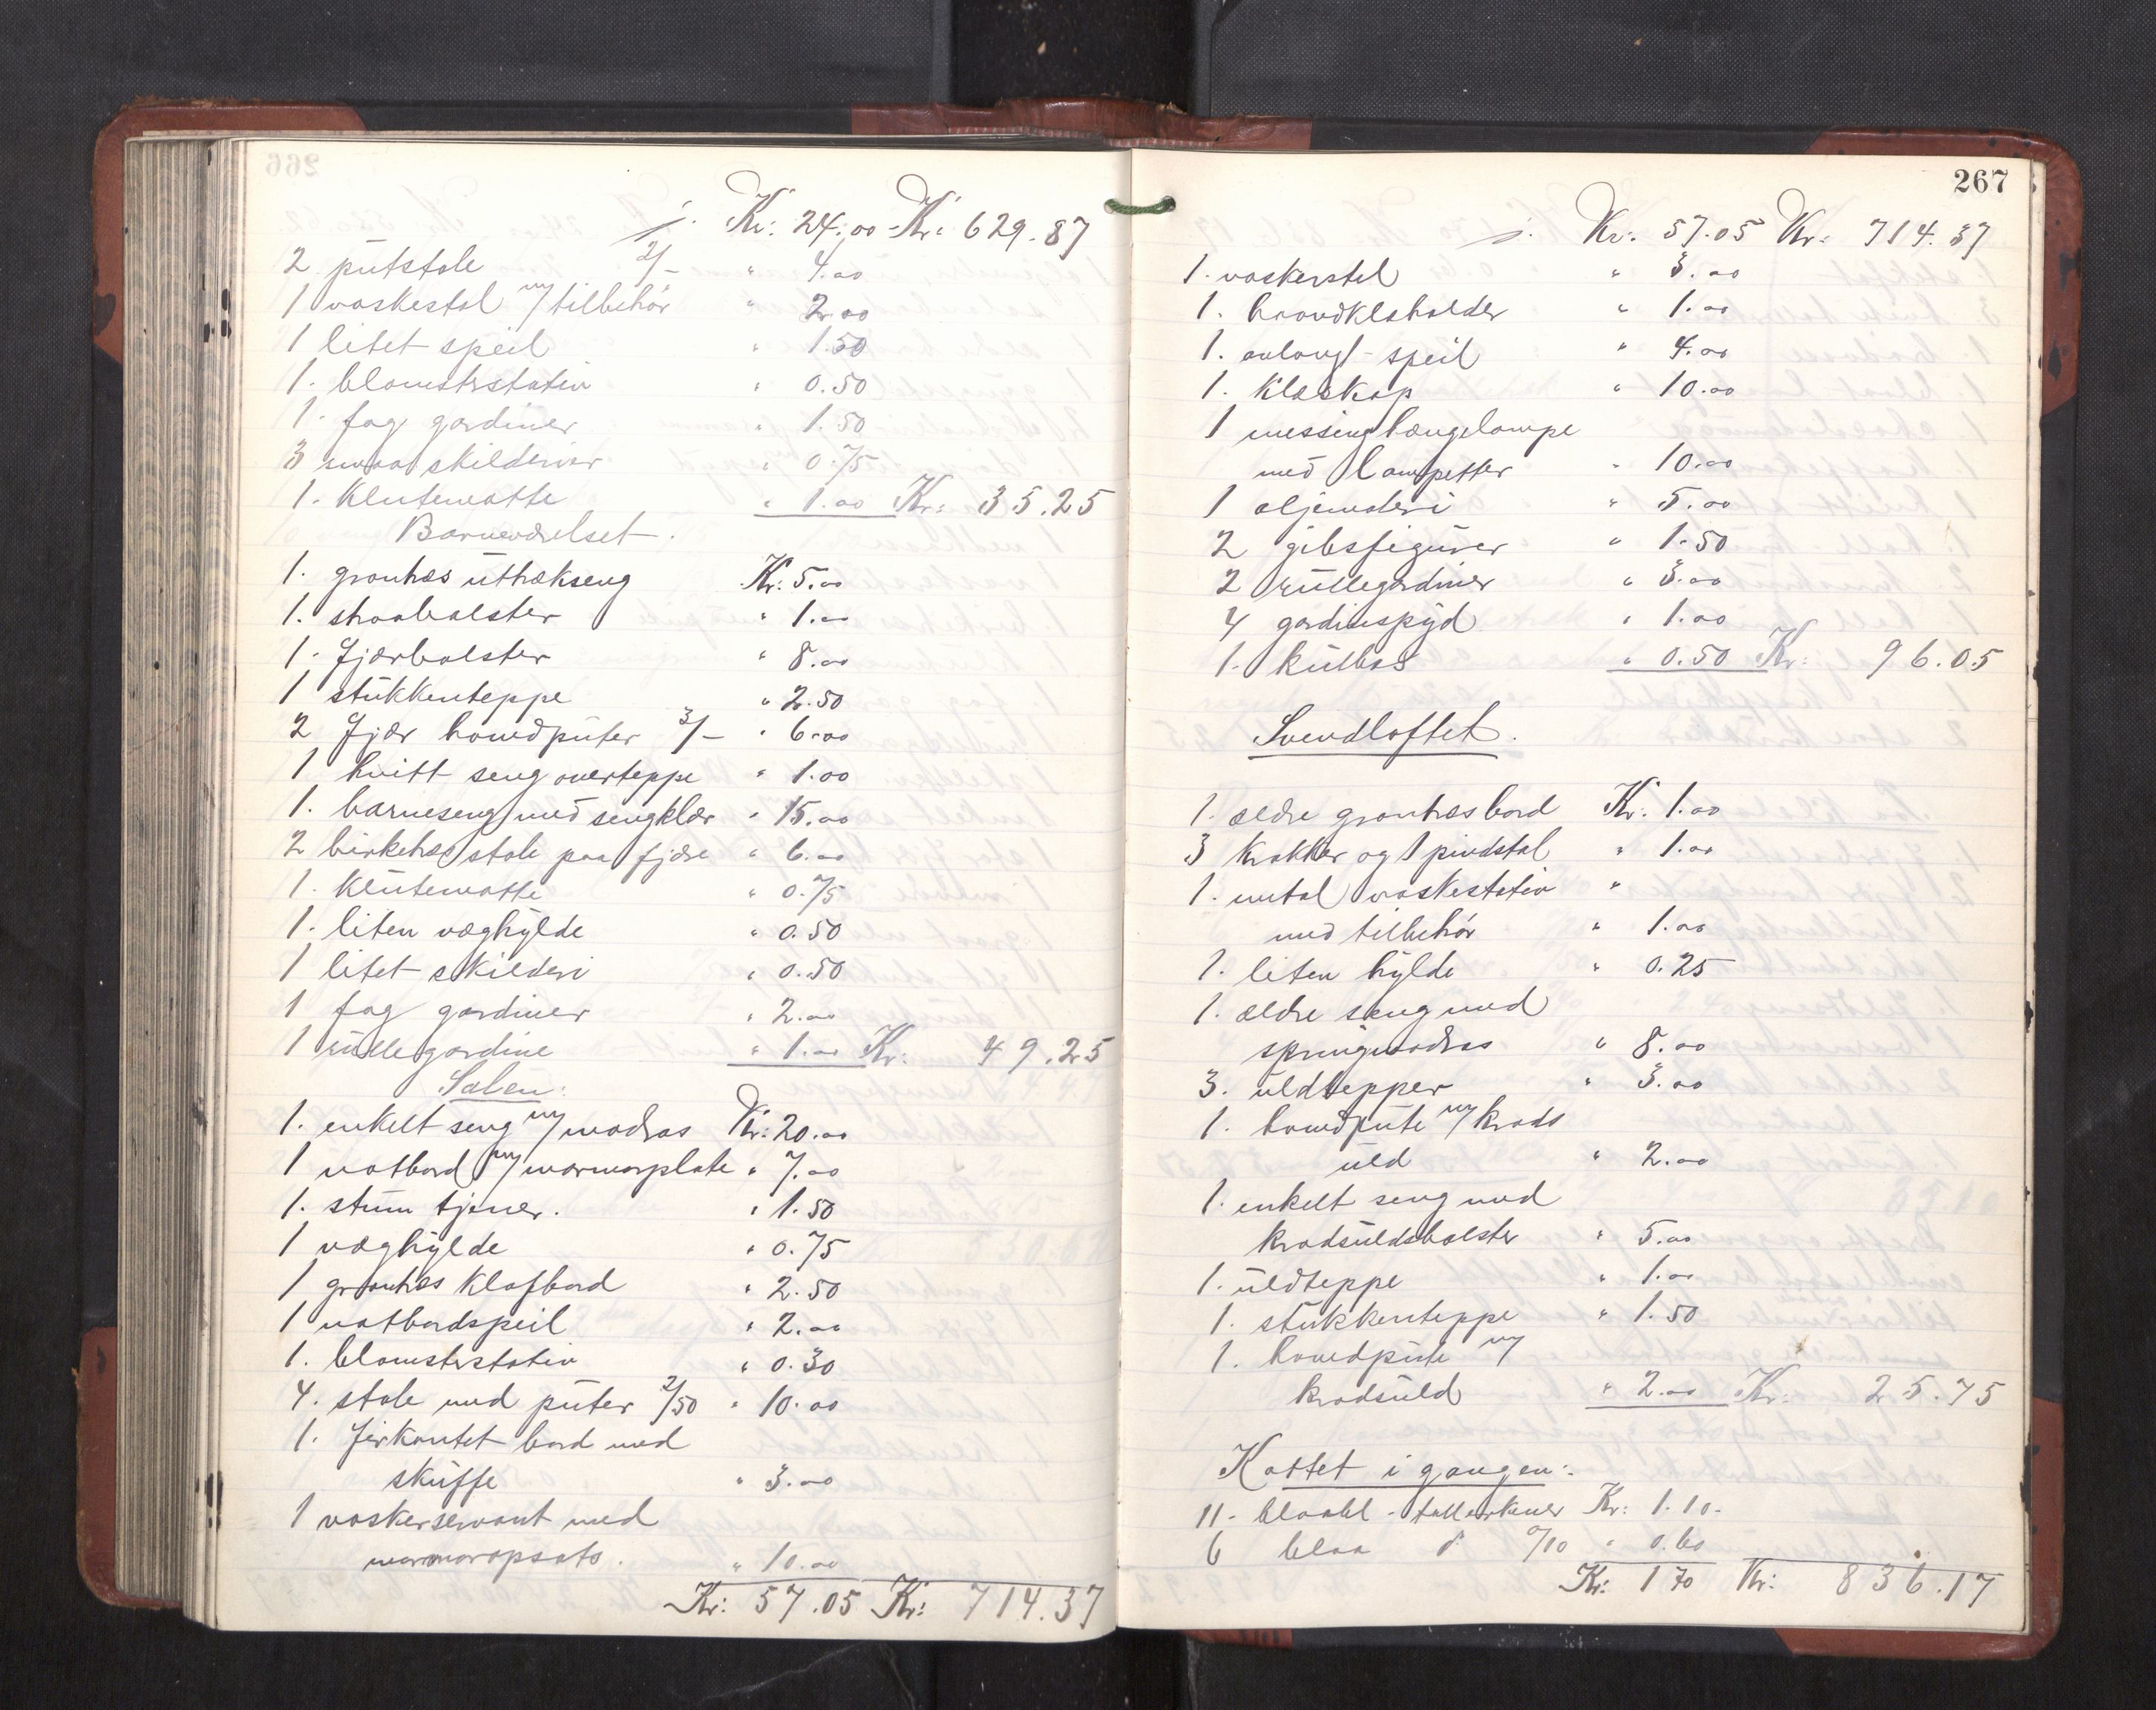 Kr: 24.00 Kr: 629.87
2 putstole 2/- " 4.00
1 vaskestol m/ tilbehør " 2.00
1 litet speil " 1.50
1. blomsterstativ " 0.50
1. fag gardiner " 1.50
3 smaa skilderier " 0.75
1. klutematte " 1.00 Kr: 35.25
Barneværelset.
1. grantræs uttrækseng Kr: 5.00
1. straabolster " 1.00
1. fjærbolster " 8.00
1 stukkenteppe " 2.50
2 fjær hovedputer 3/- " 6.00
1 hvitt seng overteppe " 1.00
1. barneseng med sengklær " 15.00
2 birketræs stole paa fjære " 6.00
1. klutematte " 0.75
1. liten væghylde " 0.50
1 litet skilderi " 0.50
1 fag gardiner " 2.00
1 rullegardine " 1.00 Kr: 49.25
Salen:
1. enkelt seng m/ madras Kr: 20.00
1 natbord m/ marmorplate " 7.00
1. stum tjener. " 1.50
1 væghylde " 0.75
1 grantræs klafbord " 2.50
1 natbordspeil " 2.00
1. blomsterstativ " 0.30
4. stole med puter 2/50 " 10.00
1. firkantet bord med
skuffe " 3.00
1 vaskerservant med
marmoropsats. " 10.00
Kr: 57.05 Kr: 714.37
267
Kr: 57.05 Kr: 714.37
1. vaskerstel " 3.00
1. haandklæholder " 1.00
1. avlangt speil " 4.00
1. klæskap " 10.00
1 messing hængelampe
med lampetter " 10.00
1 oljemaleri " 5.00
2 gibsfigurer " 1.50
2 rullegardiner " 3.00
4 gardinspyd " 1.00
1. kulbas " 0.50 Kr: 96.05
Svendloftet.
1. ældre grantræsbord Kr: 1.00
3 krakker og 1 pindstol " 1.00
1. metal vaskestativ "
med tilbehør " 1.00
1. liten hylde " 0.25
1. ældre seng med
springmadras " 8.00
3. uldtepper " 3.00
1. hovedpute m/ krads
uld " 2.00
1. enkelt seng med
kradsuldsbolster " 5.00
1. uldteppe " 1.00
1. stukkenteppe " 1.50
1. hovedpute m/
kradsuld " 2.00 Kr: 25.75
Kottet i gangen:
11. blaabl. tallerkener Kr: 1.10.
6 blaa do 0/10 " 0.60
Kr: 1 70 Kr: 836.17